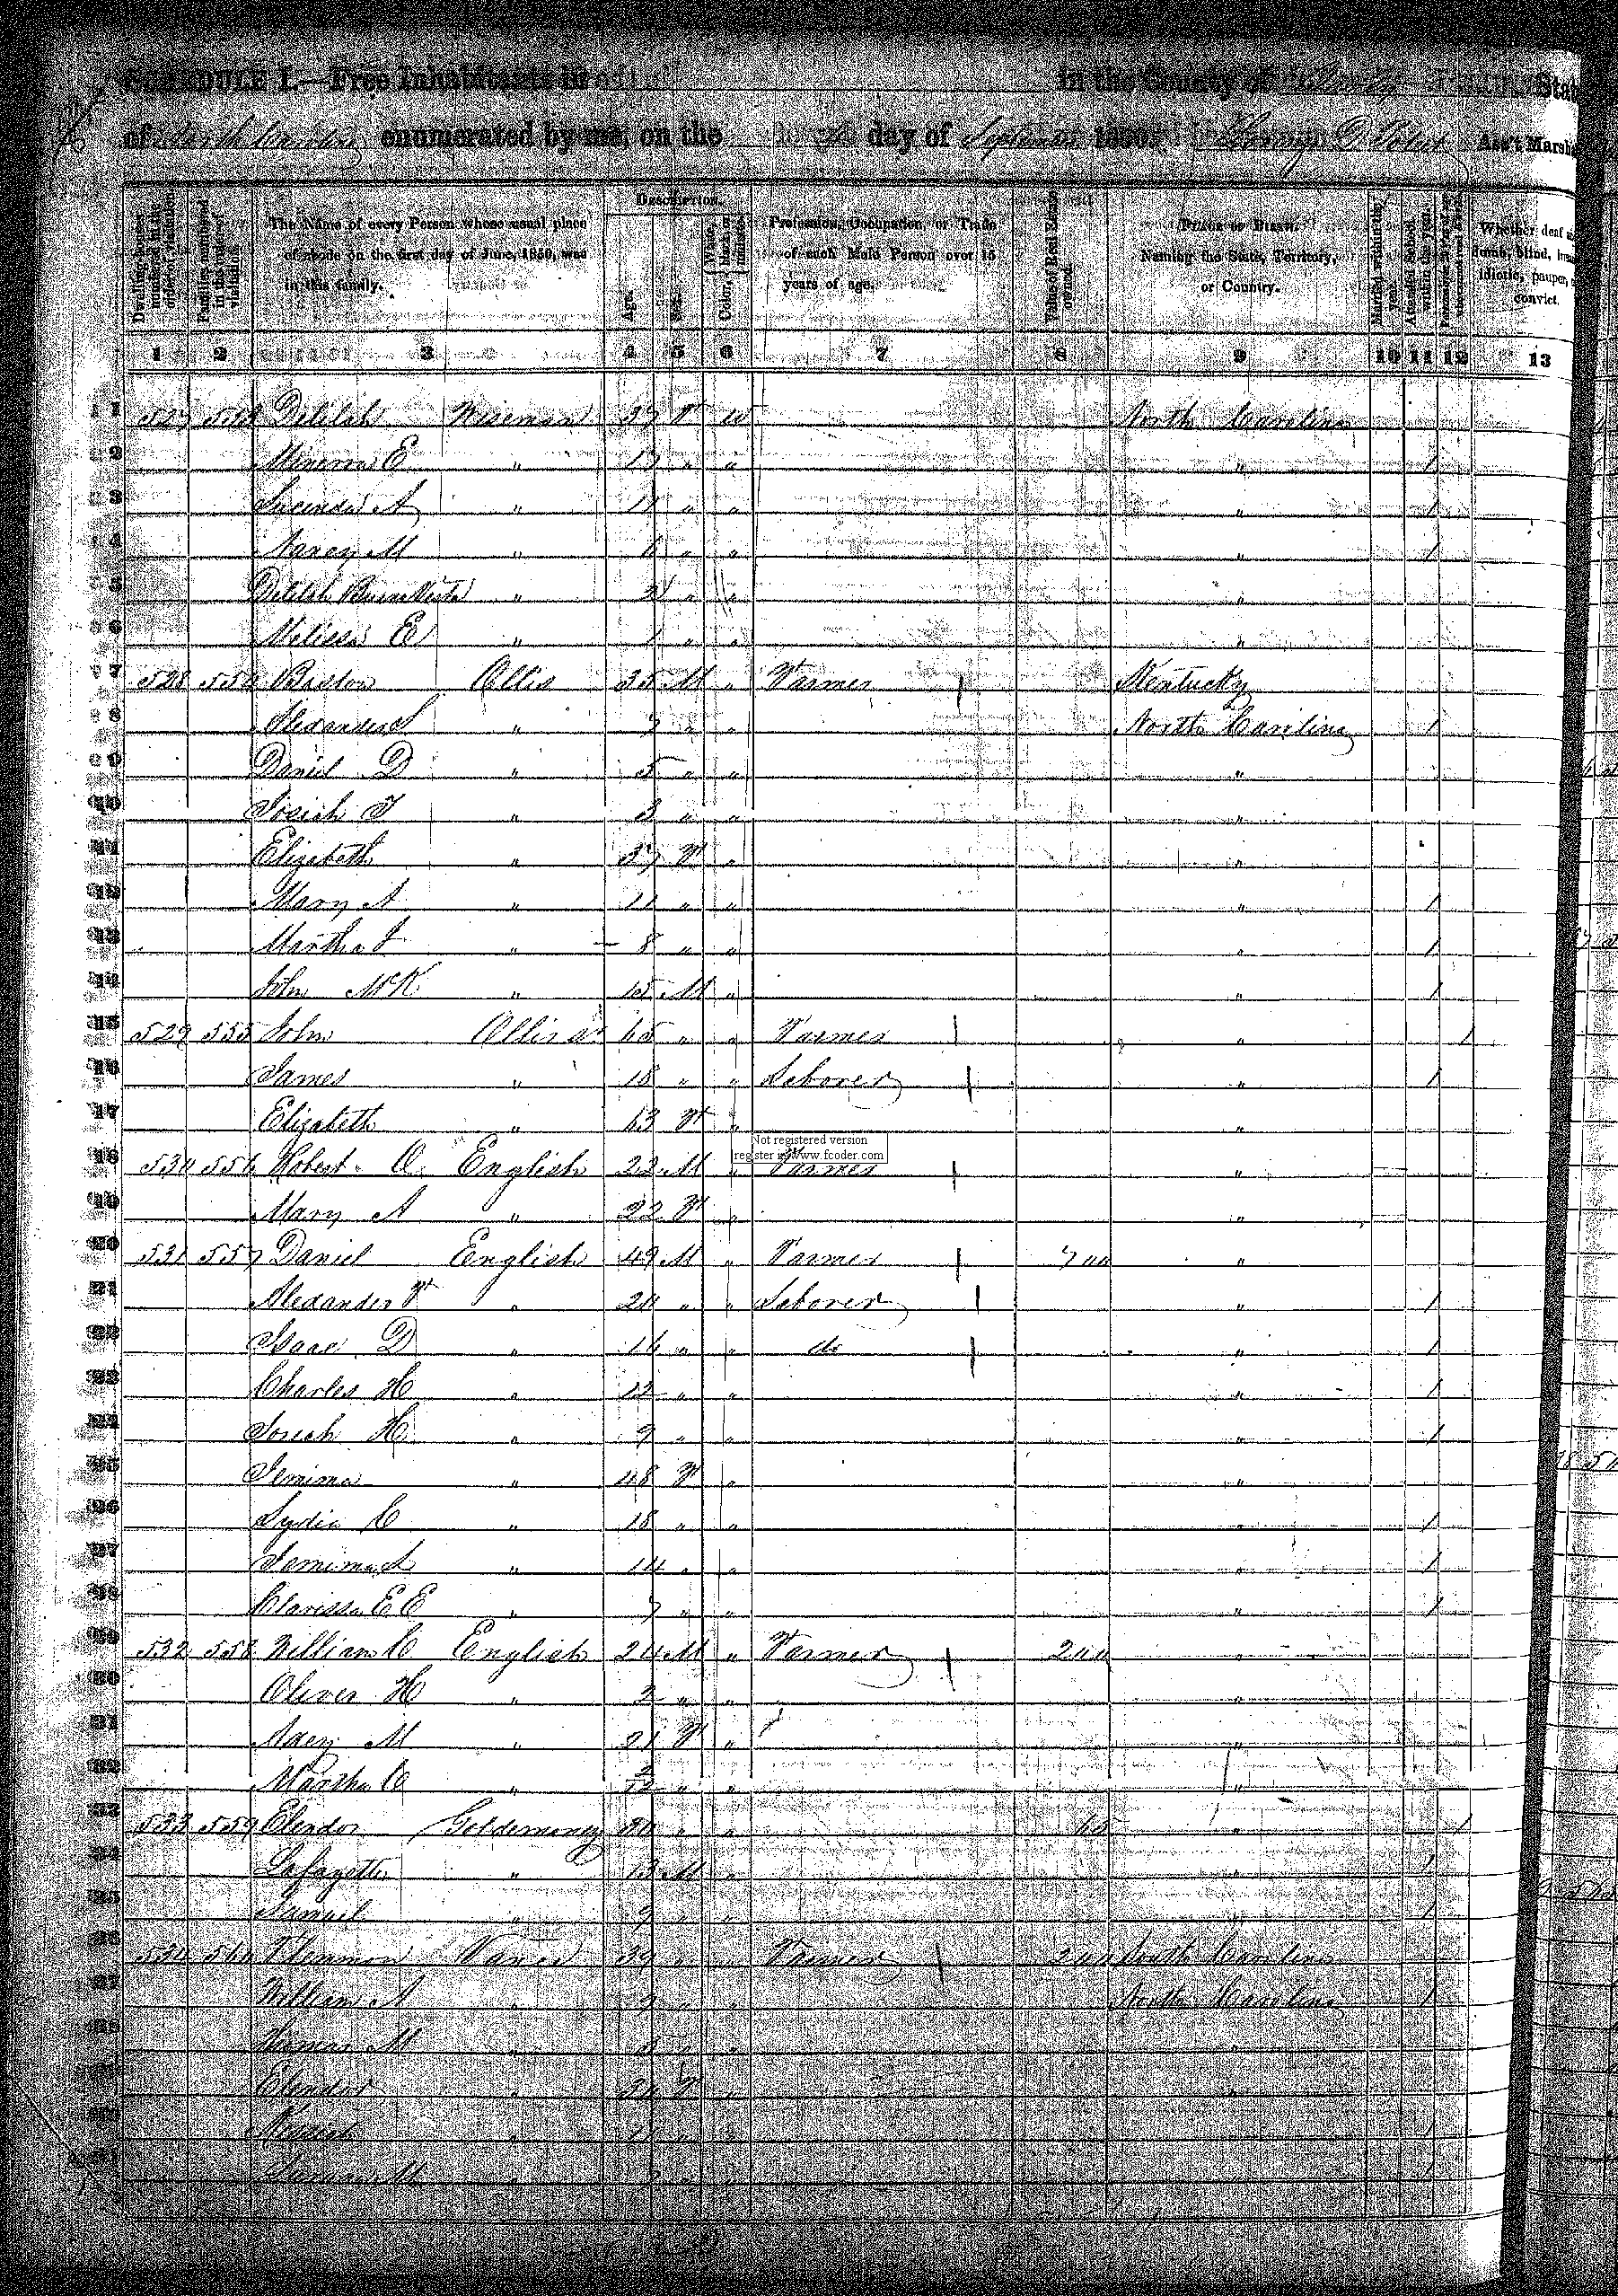 SCHEDULE I.—Free Inhabitants in in the County of State
of North Carolina enumerated by me, on the day of September 1850. Ass't Marshal
Dwelling-houses numbered in the order of visitation.
Families numbered in the order of visitation.
The Name of every Person whose usual place of abode on the first day of June, 1850, was in this family.
Description.
Age.
Sex.
Color, White, black or mulatto.
Profession, Occupation, or Trade of each Male Person over 15 years of age.
Value of Real Estate owned.
PLACE OF BIRTH. Naming the State, Territory, or Country.
Married within the year.
Attended School within the year.
Whether deaf dumb, blind, idiotic, pauper, convict.
1 2 3 4 5 6 7 8 9 10 11 12 13
1 527 553 Delilah Wiseman 37 F W North Carolina
2 Minerva E " 17 " " " 1
3 Lucinda A " 11 " " " 1
4 Nancy M " 6 " " " 1
5 Delilah Buena Vista " 2 " " "
6 Melissa E " 1 " " "
7 528 554 Baston Ollis 35 M " Farmer Kentucky
8 Alexander S " 7 " " North Carolina 1
9 Daniel D " 5 " " "
10 Josiah T " 3 " " "
11 Elizabeth " 37 F " "
12 Mary A " 11 " " " 1
13 Martha J " 8 " " " 1
14 John McK " 15 M " " 1
15 529 555 John Ollis 65 " " Farmer " 1
16 James " 18 " " Laborer " 1
17 Elizabeth " 63 F " "
Not registered version
register in www.fcoder.com
18 530 556 Robert O English 22 M " Farmer "
19 Mary A " 22 F " "
20 531 557 Daniel English 49 M " Farmer 700 "
21 Alexander F " 20 " " Laborer " 1
22 Isaac D " 16 " " do " 1
23 Charles H " 12 " " " 1
24 Josiah H " 9 " " " 1
25 Jemima " 48 F " "
26 Lydia C " 18 " " " 1
27 Jemima " 14 " " " 1
28 Clarissa E E " 7 " " " 1
29 532 558 William C English 24 M " Farmer 200 "
30 Oliver H " 2 " " "
31 M " 21 F " "
32 Martha C " 2/12 " " "
33 533 559 Elendor " " " 1
34 Lafayette " 13 M " " 1
35 Samuel " 9 " " " 1
36 534 560 39 " " Farmer 200 South Carolina
37 William A " 9 " " North Carolina 1
38 Thomas M " 5 " " "
39 Elendor " F " "